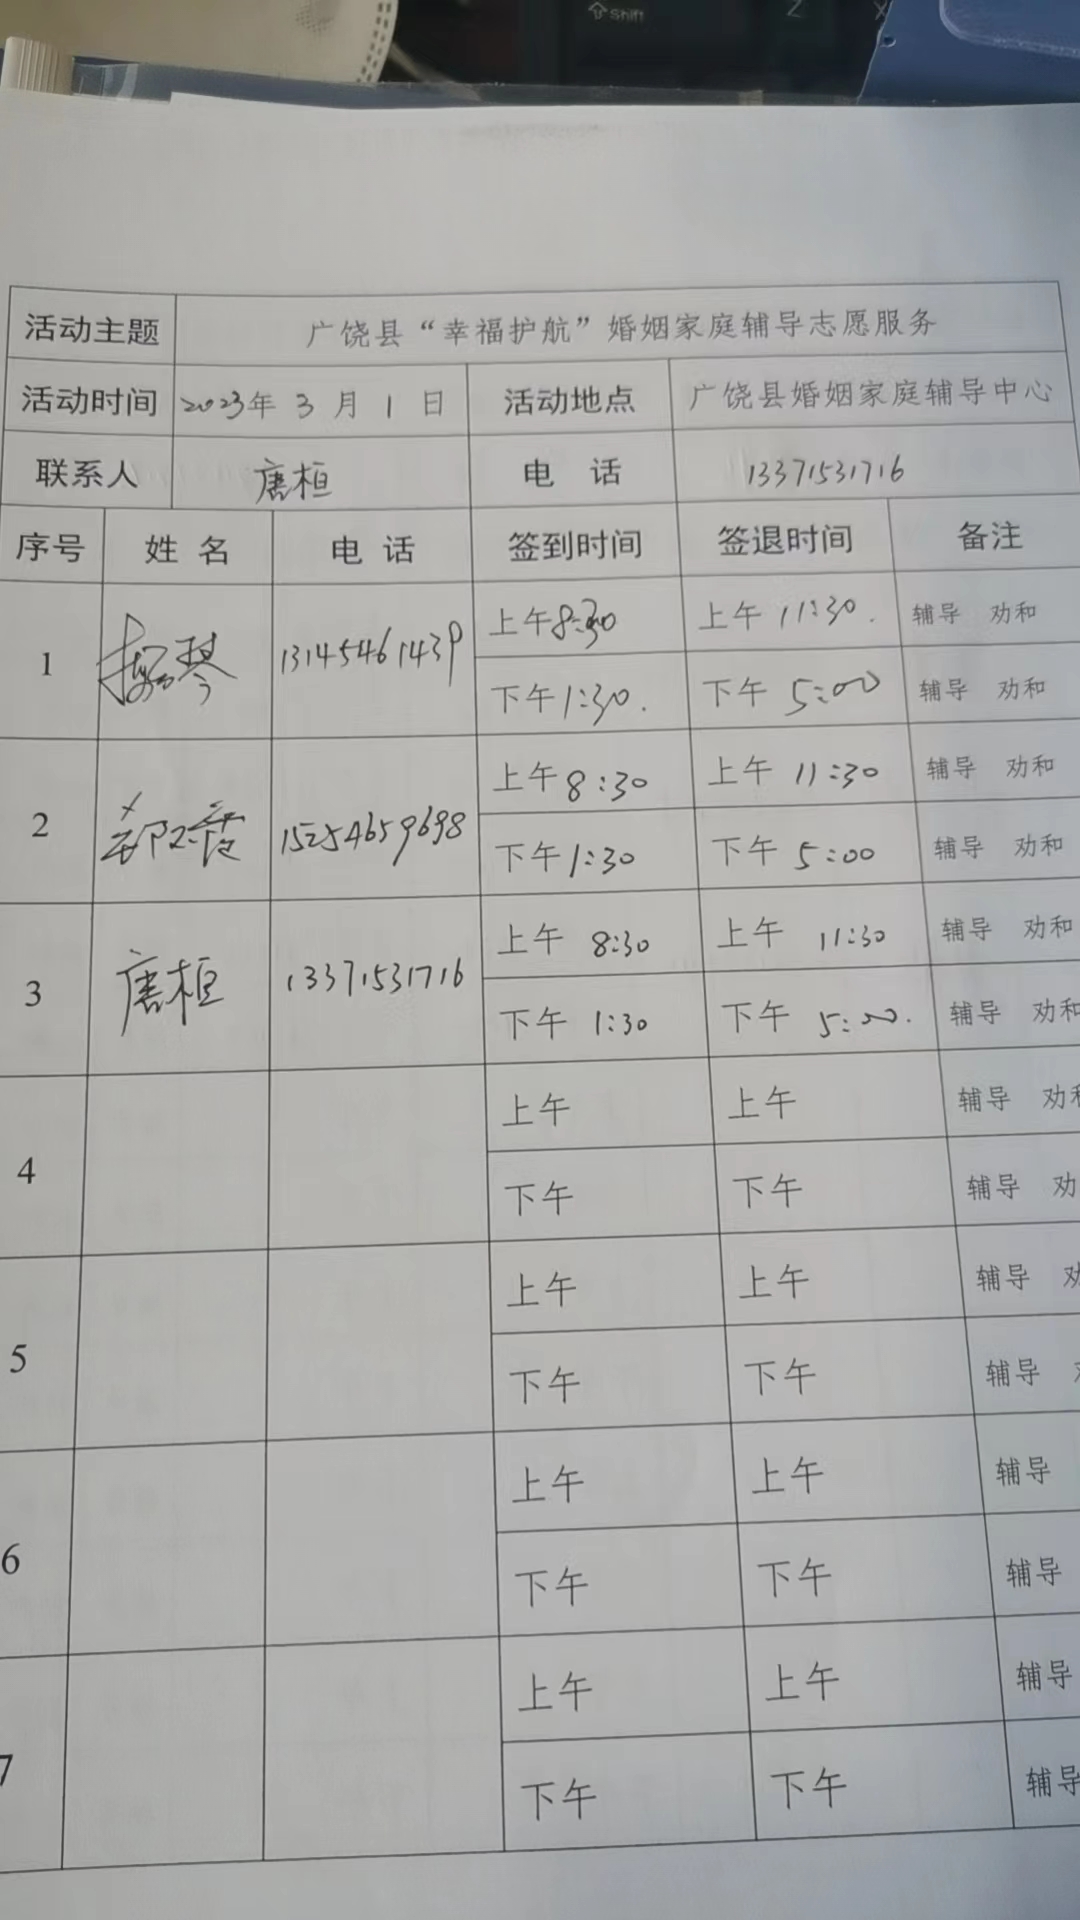 Shift
Z
X
活动主题 广饶县“幸福护航”婚姻家庭辅导志愿服务
活动时间 2023年 3 月 1 日 活动地点 广饶县婚姻家庭辅导中心
联系人 唐桓 电 话 13371531716
序号 姓 名 电 话 签到时间 签退时间 备注
1 琴 13145461439 上午8:30 上午 11:30. 辅导 劝和
下午1:30. 下午 5:00 辅导 劝和
2 15254659698 上午8:30 上午 11:30 辅导 劝和
下午1:30 下午 5:00 辅导 劝和
3 唐桓 13371531716 上午 8:30 上午 11:30 辅导 劝和
下午 1:30 下午 5:00. 辅导 劝和
4 上午 上午 辅导 劝和
下午 下午 辅导 劝
5 上午 上午 辅导 劝
下午 下午 辅导
6 上午 上午 辅导
下午 下午 辅导
7 上午 上午 辅导
下午 下午 辅导